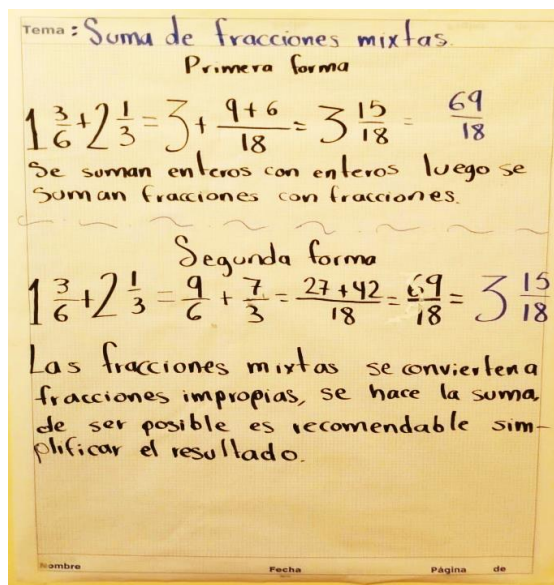 Tema : Suma de fracciones mixtas.
Primera forma
1 3/6 + 2 1/3 = 3 + 9+6/18 = 3 15/18 = 69/18
Se suman enteros con enteros luego se
suman fracciones con fracciones.
Segunda forma
1 3/6 + 2 1/3 = 9/6 + 7/3 = 27+42/18 = 69/18 = 3 15/18
Las fracciones mixtas se convierten a
fracciones impropias, se hace la suma,
de ser posible es recomendable sim-
plificar el resultado.
Nombre Fecha Página de